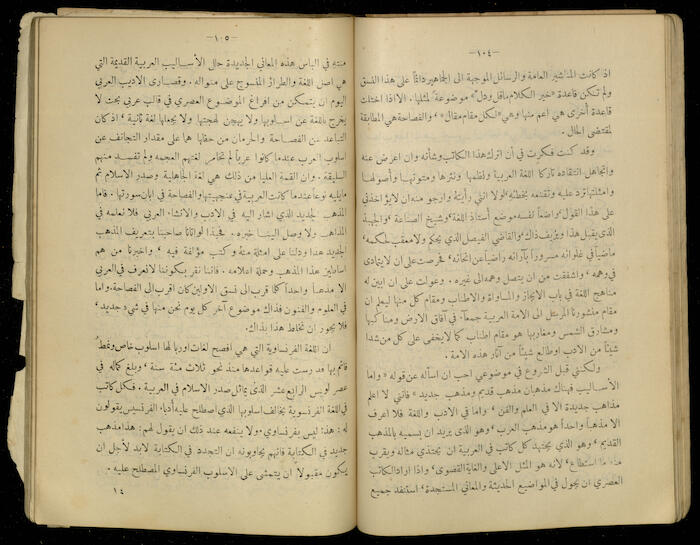 —١٠٤—
اذا كانت المناشير العامة والرسائل الموجهة الى الجماهير دائماً على هذا النسق
ولم تكن قاعدة «خير الكلام ما قل ودل» موضوعة لمثلها. الا اذا اختلت
قاعدة أخرى هي اعم منها وهي «لكل مقام مقال»، والفصاحة هي المطابقة
لمقتضى الحال.
وقد كنت فكرت في أن اترك هذا الكاتب وشأنه وان اعرض عنه
واتجاهل انتقاده تاركا اللغة العربية ونظمها ونثرها ومتونها وأصولها
وامثلتها ترد عليه وتقنعه بخطئه لولا انني رأيته وارجو منه ان لا يؤاخذني
على هذا القول واضعاً نفسه موضع أستاذ اللغة وشيخ الصناعة والجهبذ
الذي يقبل هذا ويزيف ذاك والقاضي الفيصل الذي يحكم ولا معقب لحكمه،
ماضياً في غلوائه مسروراً بآرائه راضياً عن انحائه، فحرصت على ان لا يتمادى
في وهمه، واشفقت من ان يتصل وهمه الى غيره. وعولت على ان ابين له
مناهج اللغة في باب الايجاز والمساواة والاطناب ومقام كل منها ليعلم ان
مقام منشورنا المرسل الى الامة العربية جمعآء في آفاق الارض ومناكبها
ومشارق الشمس ومغاربها هو مقام اطناب كما لا يخفى على كل من شدا
شيئاً من الادب او طالع شيئاً من آثار هذه الامة.
ولكني قبل الشروع في موضوعي احب ان اسأله عن قوله «واما
الأساليب فهناك مذهبان مذهب قديم ومذهب جديد» فانني لا اعلم
مذاهب جديدة الا في العلم والفن، واما في الادب واللغة فلا اعرف
الا مذهباً واحداً هو مذهب العرب، وهو الذي يريد ان يسميه بالمذهب
القديم، وهو الذي يجتهد كل كاتب في العربية ان يحتذي مثاله ويقرب
منه ما استطاع، لأنه هو المثل الاعلى والغاية القصوى، واذا اراد الكاتب
العصري ان يجول في المواضيع الحديثة والمعاني المستجدة، استنفد جميع
—١٠٥—
منتهٍ في الباس هذه المعاني الجديدة حلل الأساليب العربية القديمة التي
هي اصل اللغة والطراز المنسوج على منواله. وقصارى الأديب العربي
اليوم ان يتمكن من افراغ الموضوع العصري في قالب عربي بحت لا
يخرج باللغة عن اسلوبها ولا يهجن لهجتها ولا يجعلها لغة ثانية، اذ كان
التباعد عن الفصاحة والحرمان من حقها هما على مقدار التجانف عن
اسلوب العرب عندما كانوا عرباً لم تخامر لغتهم العجمة ولم تفسد منهم
السليقة. وان القمة العليا من ذلك هي لغة الجاهلية وصدر الاسلام ثم
ما يليه نوعاً عندما كانت العربية في عنجهيتها والفصاحة في ابان سورتها. فاما
المذهب الجديد الذي اشار اليه في الادب والانشاء العربي فلا نعلمه في
المذاهب ولا وصل الينا خبره. فحبذا لو اتانا صاحبنا بتعريف المذهب
الجديد هذا ودلنا على امثلة منه وكتب مؤلفة فيه، واخبرنا من هم
اساطين هذا المذهب وحملة اعلامه. فاننا نقر بكوننا لا نعرف في العربي
الا مذهباً واحداً كلما قرب الى نسق الاولين كان اقرب الى الفصاحة، واما
في العلوم والفنون فذاك موضوع آخر كل يوم نحن منها في شيء جديد،
فلا يجوز ان نخلط هذا بذاك.
ان اللغة الفرنساوية التي هي افصح لغات اوربا لها اسلوب خاص ونمط
قائم بها قد رست عليه قواعدها منذ نحو ثلاث مئة سنة، وبلغ كماله في
عصر لويس الرابع عشر الذي يماثل صدر الاسلام في العربية. فكل كاتب
في اللغة الفرنسوية يخالف اسلوبها الذي اصطلح عليه أدباء الفرنسيس يقولون
له: هذا ليس بفرنساوي. ولا ينفعه عند ذلك ان يقول لهم: هذا مذهب
جديد في الكتابة فانهم يجاوبونه ان التجدد في الكتابة لابد لأجل ان
يكون مقبولاً ان يتمشى على الاسلوب الفرنساوي المصطلح عليه.
١٤